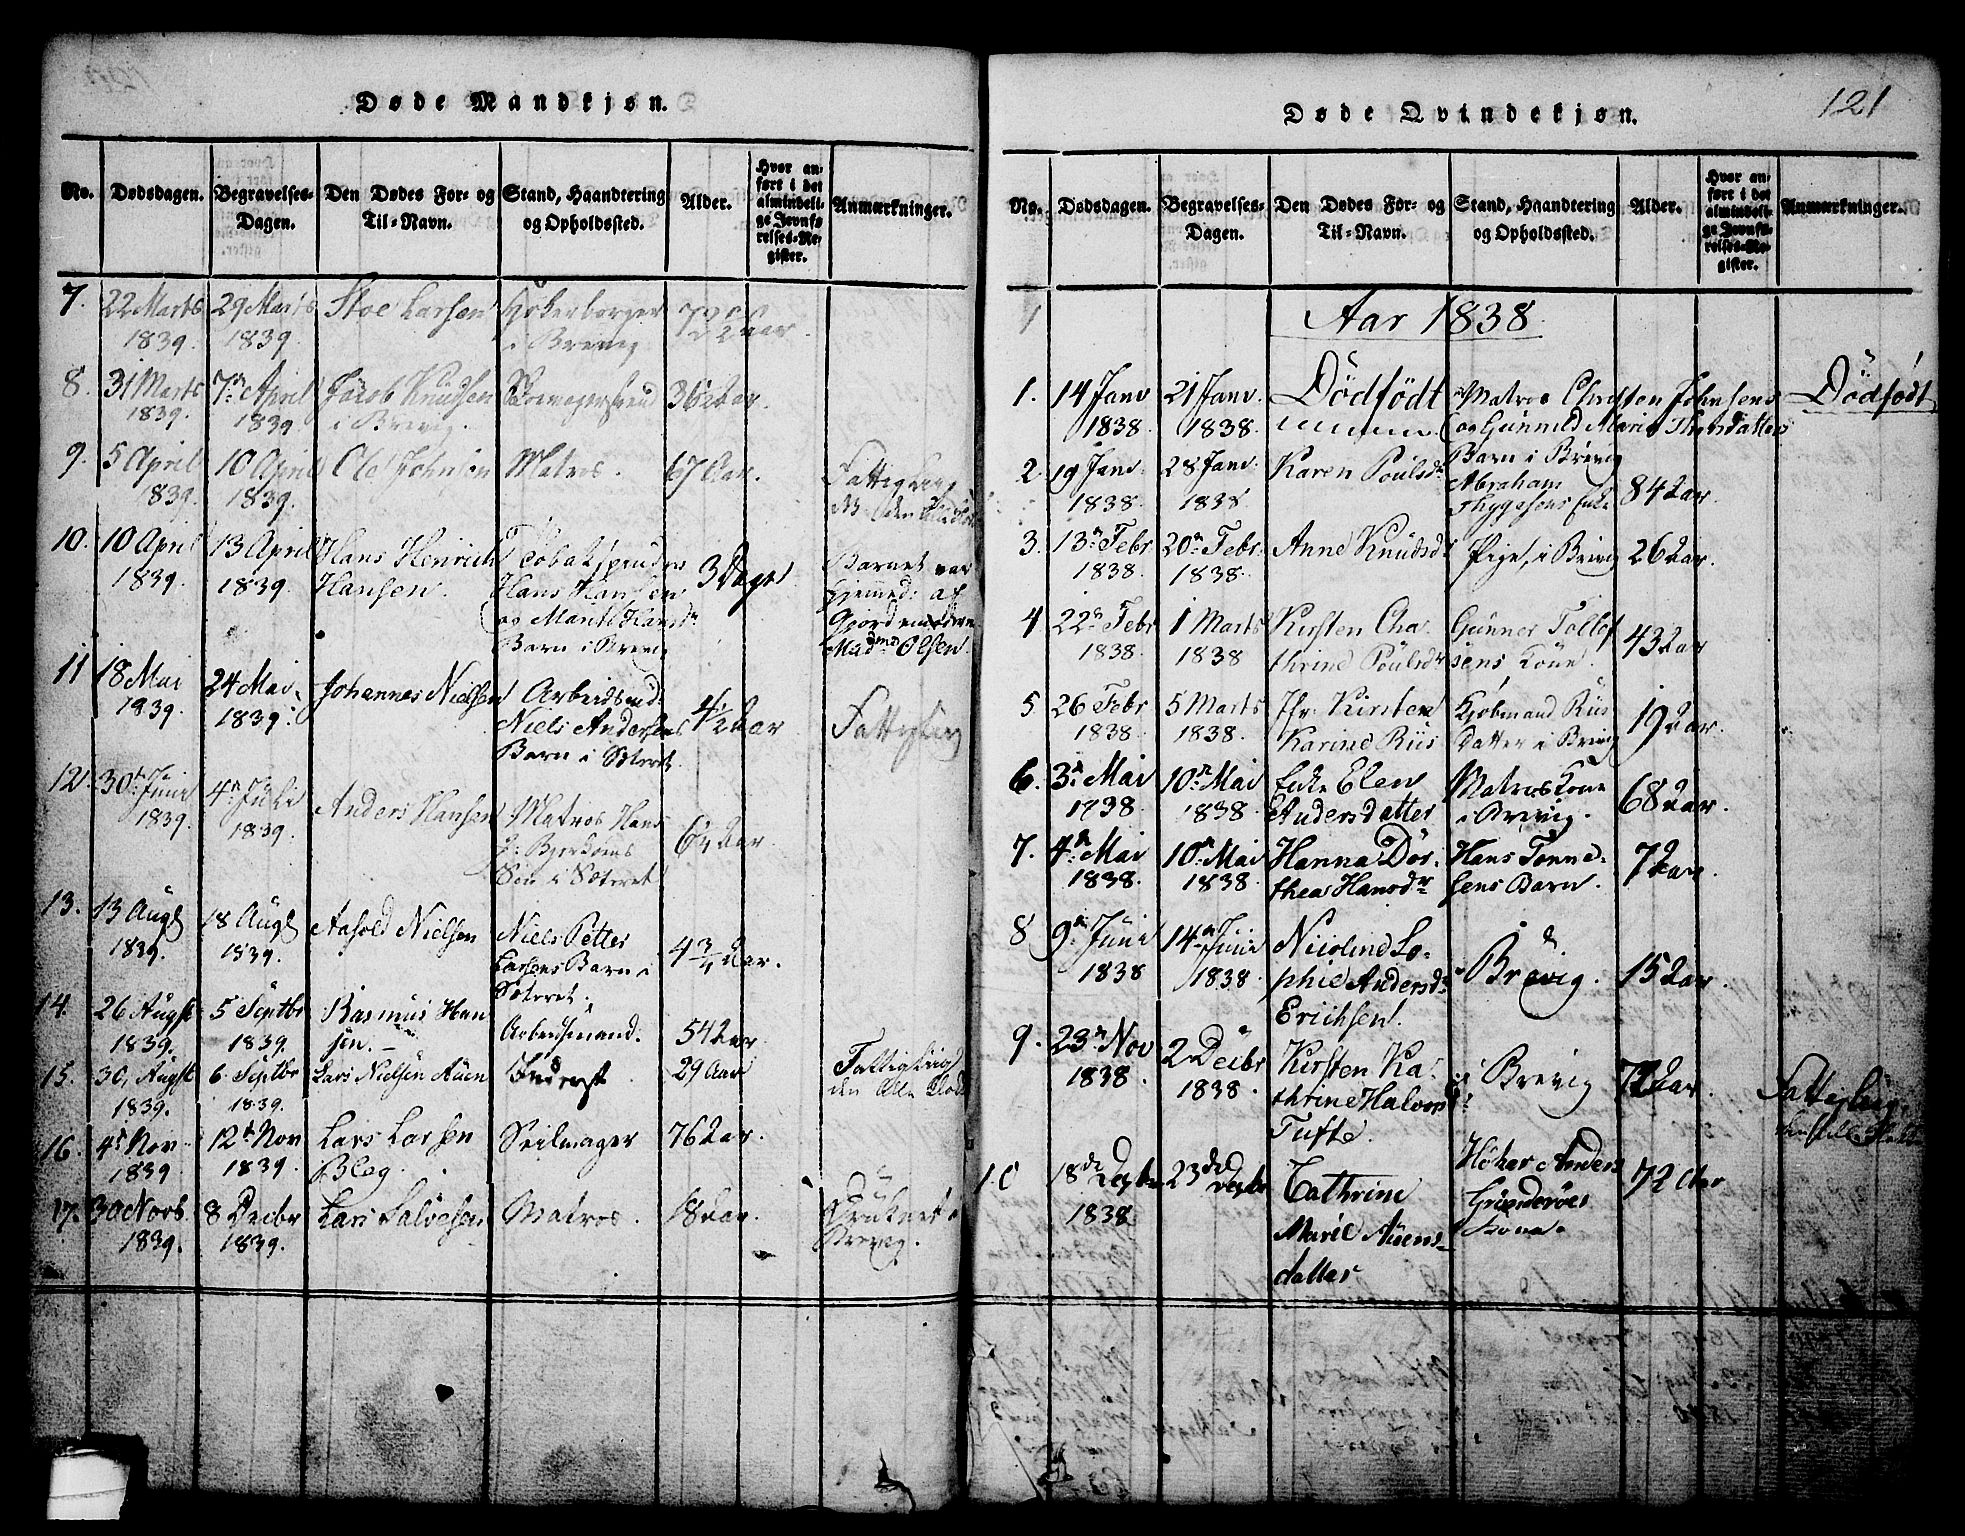 Døde Mandkjøn.
No. Dødsdagen. Begravelses-Dagen. Den Dødes For- og Til-Navn. Stand, Haandtering og Opholdssted. Alder. Hvor anført i det almindelige Jevnførelses-Register. Anmærkninger.
7. 22 Marts 1839. 29 Marts 1839. Larsen Høkerborger i Brevig
8. 31 Marts 1839. 7n April 1839 Jacob Knudsen i Brevig. 36 Aar.
9. 5 April 1839. 10 April 1839. Ole Johnsen Matros. 67 Aar.
10. 10 April 1839. 13 April 1839. Hans Henrich Hansen. Tobakspinder Hans Hansen og Hansdr Barn i Brevig 3 Dage Barnet var hjemmed: af Gjordemoderen Madme Olsen.
11 18 Mai 1839. 24 Mai 1839. Johannes Nielsen Arbeidsmd: Niels Andersens Barn i Sæteret. 4½ Aar
12. 30te Juni 1839. 4n Juli 1839. Anders Hansen Matros Hans Søn i Sæteret Aar
13. 13 Augs 1839. 18 Augs 1839. Aasold Nielsen Niels Petter Larsens Barn i Sæteret. 4¾ Aar.
14. 26 Augst 1839. 5 Septbr 1839. Rasmus Hansen. Arbeidsmand. 54 Aar
15. 30, Augst 1839. 6 Septbr 1839. Lars Nielsen Aüen Inderst 29 Aar
16. 4 Nov 1839 12 Nov 1839. Lars Larsen Seilmager 76 Aar.
17. 30 Novb. 1839. 8 Decbr 1839. Lars Salvesen Matros. 18 Aar. Druknet i Brevig.
Døde Qvindekjøn.
121
No. Dødsdagen. Begravelses-Dagen. Den Dødes For- og Til-Navn. Stand, Haandtering og Opholdssted. Alder. Hvor anført i det almindelige Jevnførelses-Register. Anmærkninger.
Aar 1838.
1. 14 Janv 1838. 21 Janv. 1838. Dödfödt Matros Christen Johnsens og Gunnild Marie Barn i Brevig Dödfödt
2. 19 Janv. 1838. 28 Janv. 1838. Karen Poülsdr Abraham Thygesens Enke 84 Aar.
3. 13n Febr 1838. 20n Febr. 1838. Anne Knüdsdr Pige, i Brevig 26 Aar.
4 22n Febr 1838. 1 Marts 1838 Kirsten Chathrine Poülsdr Günner Tollefsens Kone. 43 Aar
5 26 Febr 1838. 5 Marts 1838. Jfr. Kirsten Karine Riis Kjøbmand Riis Datter i Brevig 19 Aar.
6. 3n Mai 1738. 10n Mai 1838. Enke Elen Andersdatter Matros Kone i Brevig. 68 Aar.
7. 4n Mai 1838. 10n Mai 1838. Hanna Dörthea Hansdr Hans Tønnesens Barn. 7 Aar.
8 9n Juni 1838 14n Juni 1838. Nicoline Sophie Andersdr Erichsen. Brevig. 15 Aar.
9. 23n Nov 1838. 2 Decbr 1838. Kirsten Kathrine Halvors Tufte. i Brevig Aar.
10 18de Decbr 1838 23de Decbr Cathrine Marie Aüensdatter Høker Anders Kone. 72 Aar